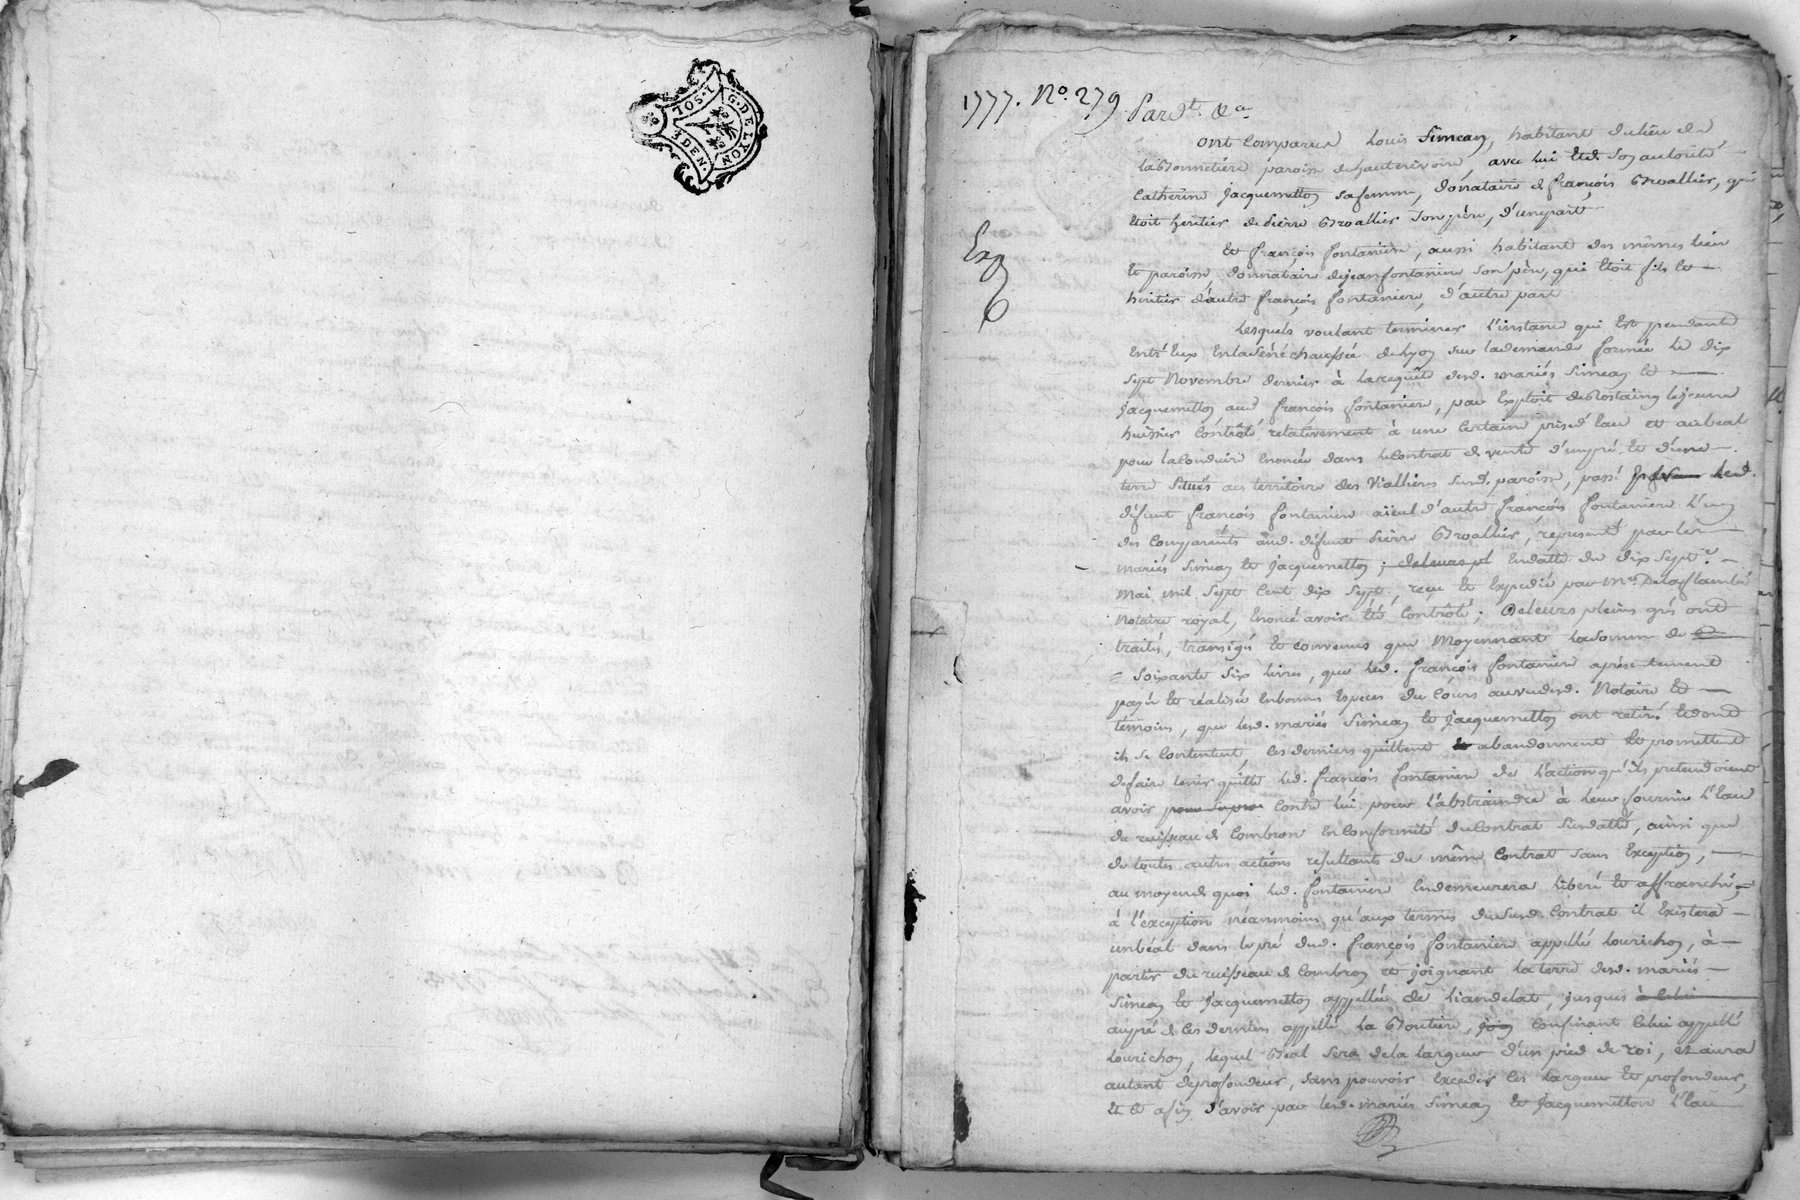 G. DE LYON
1. SOL.
6. DEN.
1777. No. 279 Pard.t &a
ont Comparu Louis Simean, habitant du lieu de
la Bonnetiere paroisse de hauterivoire, avec lui et de son autorité
Catherine Jacquemetton sa femme, donataire de françois Broallier, qui
étoit héritier de Pierre Broallier son père, d'une part
Exp
Et françois fontaniere, aussi habitant des mêmes lieu
et paroisse, donnataire de jean fontaniere son père, qui étoit fils et
héritier d'autre françois fontaniere, d'autre part
Lesquels voulant terminer l'instance qui est pendante
entr'eux en la sénéchaussée de Lyon sur la demande formée le dix
sept Novembre dernier à la requête desd. mariés Simean et
Jacquemetton aud. françois fontaniere, par exploit de Rostaing le jeune
huissier Contrôlé relativement à une Certaine prise d'eau et au béal
pour la Conduire enoncée dans le Contrat de vente d'un pré et d'une
terre situés au territoire des Vialliers susd. paroisse, passé par led.
défunt françois fontaniere aïeul d'autre françois fontaniere l'un
des Comparents aud. défunt Pierre Broallier, representé par les
mariés Simean et Jacquemetton, de leurs pl en datte du dix sept
mai mil sept Cent dix sept, reçu et Expedié par Me.
Notaire royal, Enoncé avoir été Contrôlé; De leurs pleins grés ont
traité, transigé et convenus que Moyennant la somme de
= Soixante Six livres, que led. françois fontaniere a présentement
payée et réalisée en bonnes Especes du Cours au vu desd. Notaire et
temoins, que lesd. mariés Simean et Jacquemetton ont retiré et dont
ils se Contentent, ces derniers quittent et abandonnent et promettent
de faire tenir quitte led. françois fontaniere de l'action qu'ils pretendoient
avoir contre lui pour l'abstraindre à leur fournir l'eau
du ruisseau de Combron en Conformité du Contrat susdatté, ainsi que
de toutes autres actions résultants du même Contrat sans Exception,
au moyend. quoi led. fontaniere en demeurera liberé et affranchi,
à l'exception néanmoins qu'aux termes du susd. Contrat il Existera
un béal dans le pré dud. françois fontaniere appellé Lourichon, à
partir du ruisseau de Combron et joignant la terre desd. mariés
Simean et Jacquemetton appellée de Liandelat, jusques à celui
au pré de ces derniers appellé La Boutiere, join Confinant celui appellé
Lourichon, lequel Béal sera de la largeur d'un pied de roi, et aura
autant de profondeur, sans pouvoir Exceder ces largeur et profondeur,
Et afin d'avoir par lesd. mariés Simean et Jacquemetton l'eau